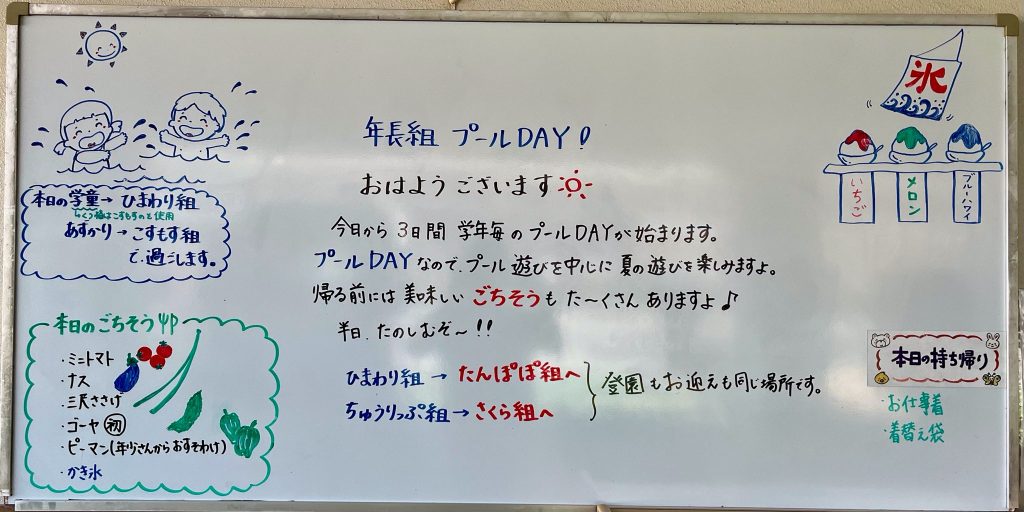 年長組 プールDAY!
おはようございます
今日から 3日間 学年毎のプールDAYが始まります。
プールDAYなので、プール遊びを中心に夏の遊びを楽しみますよ。
帰る前には美味しいごちそうもた〜くさんありますよ♪
半日、たのしむぞ〜!!
ひまわり組 → たんぽぽ組へ
ちゅうりっぷ組 → さくら組へ
登園もお迎えも同じ場所です。
本日の学童→ ひまわり組
あずかり→ こすもす組
で、過ごします。
本日のごちそう
・ミニトマト
・ナス
・三尺ささげ
・ゴーヤ 初
・ピーマン(年少さんからおすそわけ)
・かき氷
氷
いちご
メロン
ブルーハワイ
本日の持ち帰り
・お仕事着
・着替え袋